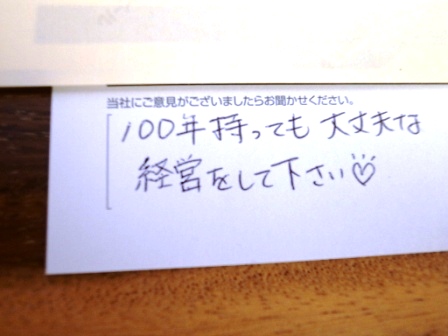 当社にご意見がございましたらお聞かせください。
100年持っても大丈夫な
経営をして下さい♡